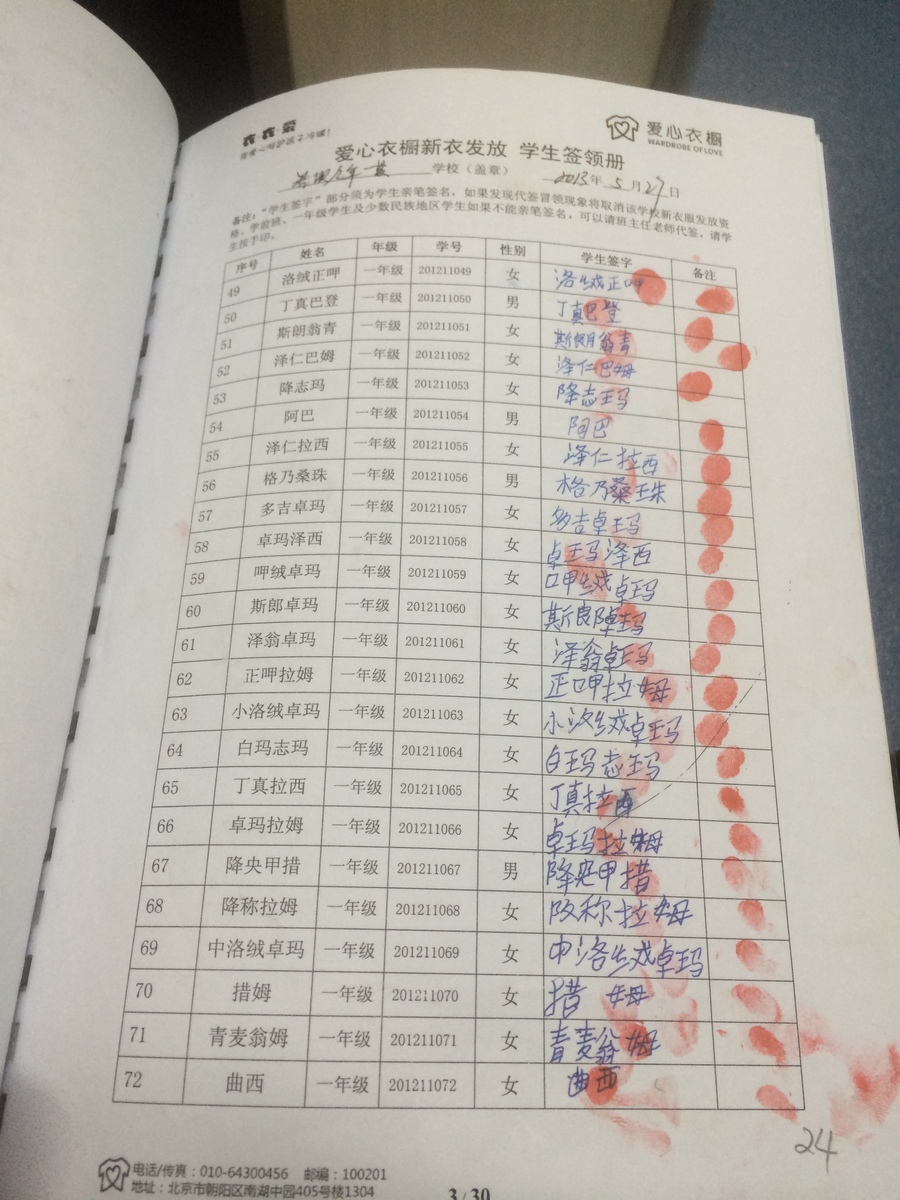 衣+衣聚
爱心衣橱
WARDROBE OF LOVE
爱心衣橱新衣发放 学生签领册
学校（盖章） 2013年 5月27日
备注："学生签字"部分须为学生亲笔签名，如果发现代签冒领现象将取消该学校新衣服发放资
格。学前班、一年级学生及少数民族地区学生如果不能亲笔签名，可以请班主任老师代签，请学
生按手印。
序号 姓名 年级 学号 性别 学生签字 备注
49 洛绒正呷 一年级 201211049 女 洛绒正呷
50 丁真巴登 一年级 201211050 男 丁真巴登
51 斯朗翁青 一年级 201211051 女 斯朗翁青
52 泽仁巴姆 一年级 201211052 女 泽仁巴姆
53 降志玛 一年级 201211053 女 降志玛
54 阿巴 一年级 201211054 男 阿巴
55 泽仁拉西 一年级 201211055 女 泽仁拉西
56 格乃桑珠 一年级 201211056 男 格乃桑珠
57 多吉卓玛 一年级 201211057 女 多吉卓玛
58 卓玛泽西 一年级 201211058 女 卓玛泽西
59 呷绒卓玛 一年级 201211059 女 呷绒卓玛
60 斯郎卓玛 一年级 201211060 女 斯郎卓玛
61 泽翁卓玛 一年级 201211061 女 泽翁卓玛
62 正呷拉姆 一年级 201211062 女 正呷拉姆
63 小洛绒卓玛 一年级 201211063 女 小洛绒卓玛
64 白玛志玛 一年级 201211064 女 白玛志玛
65 丁真拉西 一年级 201211065 女 丁真拉西
66 卓玛拉姆 一年级 201211066 女 卓玛拉姆
67 降央甲措 一年级 201211067 男 降央甲措
68 降称拉姆 一年级 201211068 女 降称拉姆
69 中洛绒卓玛 一年级 201211069 女 中洛绒卓玛
70 措姆 一年级 201211070 女 措姆
71 青麦翁姆 一年级 201211071 女 青麦翁姆
72 曲西 一年级 201211072 女 曲西
24
电话/传真：010-64300456 邮编：100201
地址：北京市朝阳区南湖中园405号楼1304
3 / 30